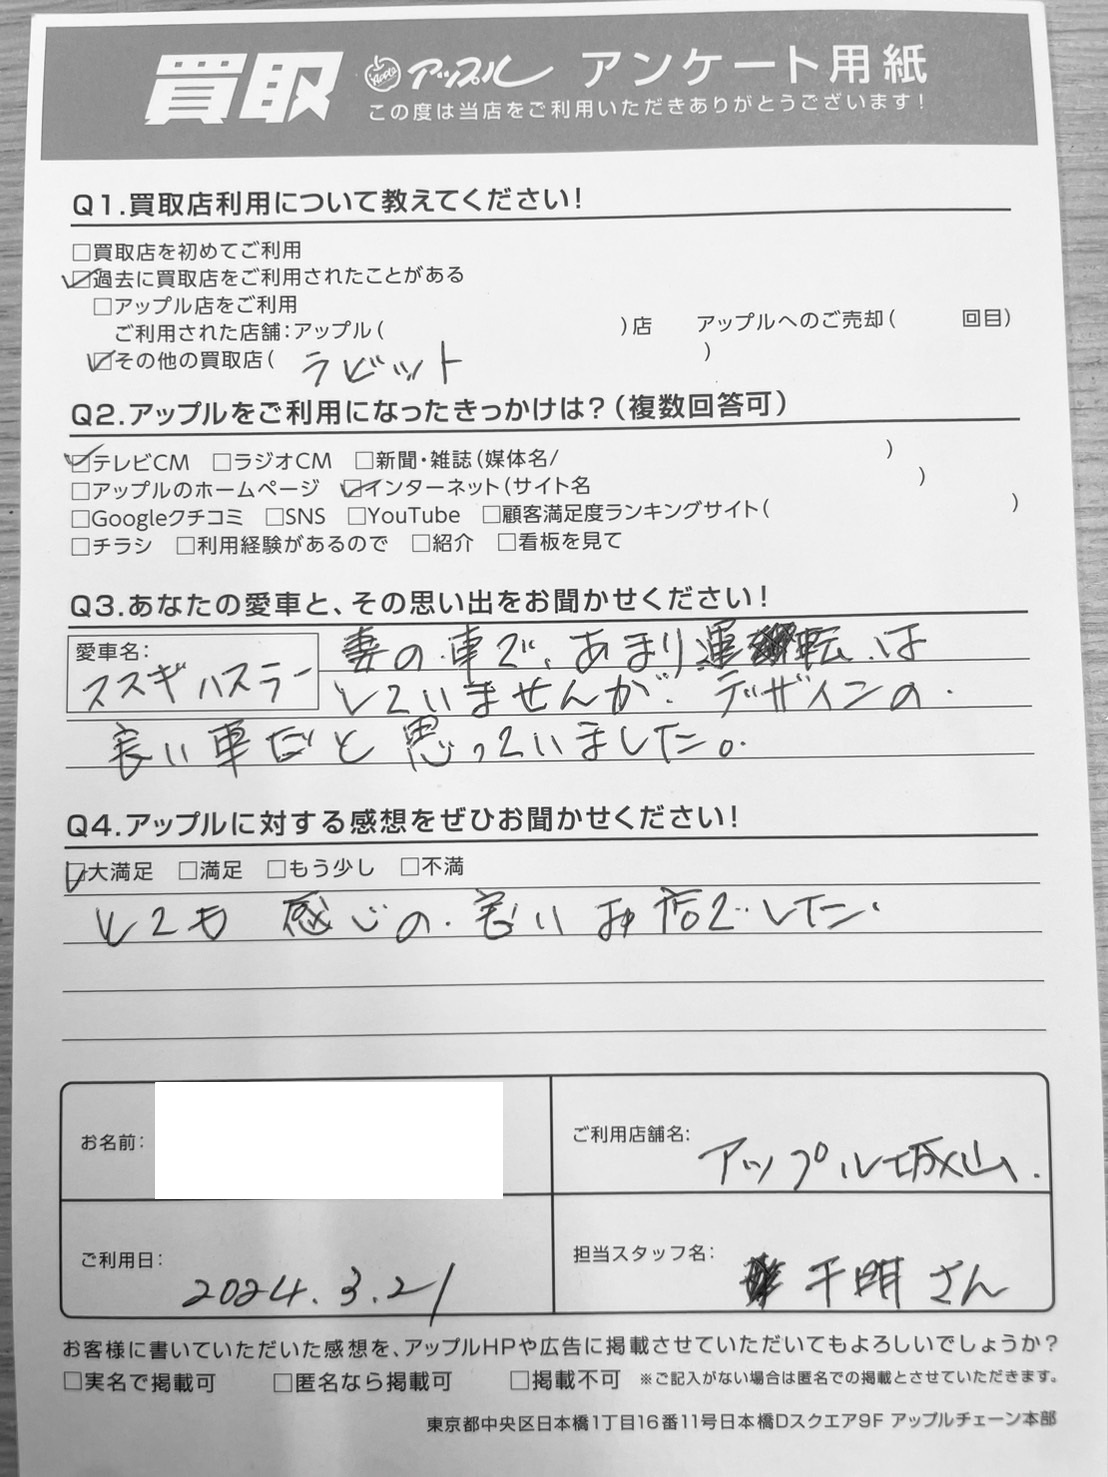 買取 Apple アップル アンケート用紙
この度は当店をご利用いただきありがとうございます!
Q1.買取店利用について教えてください!
□買取店を初めてご利用
☑過去に買取店をご利用されたことがある
□アップル店をご利用
ご利用された店舗:アップル( )店 アップルへのご売却( 回目)
☑その他の買取店( ラビット )
Q2.アップルをご利用になったきっかけは?(複数回答可)
☑テレビCM □ラジオCM □新聞・雑誌(媒体名/ )
□アップルのホームページ ☑インターネット(サイト名 )
□Googleクチコミ □SNS □YouTube □顧客満足度ランキングサイト( )
□チラシ □利用経験があるので □紹介 □看板を見て
Q3.あなたの愛車と、その思い出をお聞かせください!
愛車名:
スズキ ハスラー
妻の車で、あまり運転は
していませんが、デザインの
良い車だと思っていました。
Q4.アップルに対する感想をぜひお聞かせください!
☑大満足 □満足 □もう少し □不満
とても感じの良いお店でした。
お名前:
ご利用店舗名: アップル城山.
ご利用日: 2024.3.21
担当スタッフ名: 千明さん
お客様に書いていただいた感想を、アップルHPや広告に掲載させていただいてもよろしいでしょうか?
□実名で掲載可 □匿名なら掲載可 □掲載不可 ※ご記入がない場合は匿名での掲載とさせていただきます。
東京都中央区日本橋1丁目16番11号日本橋Dスクエア9F アップルチェーン本部